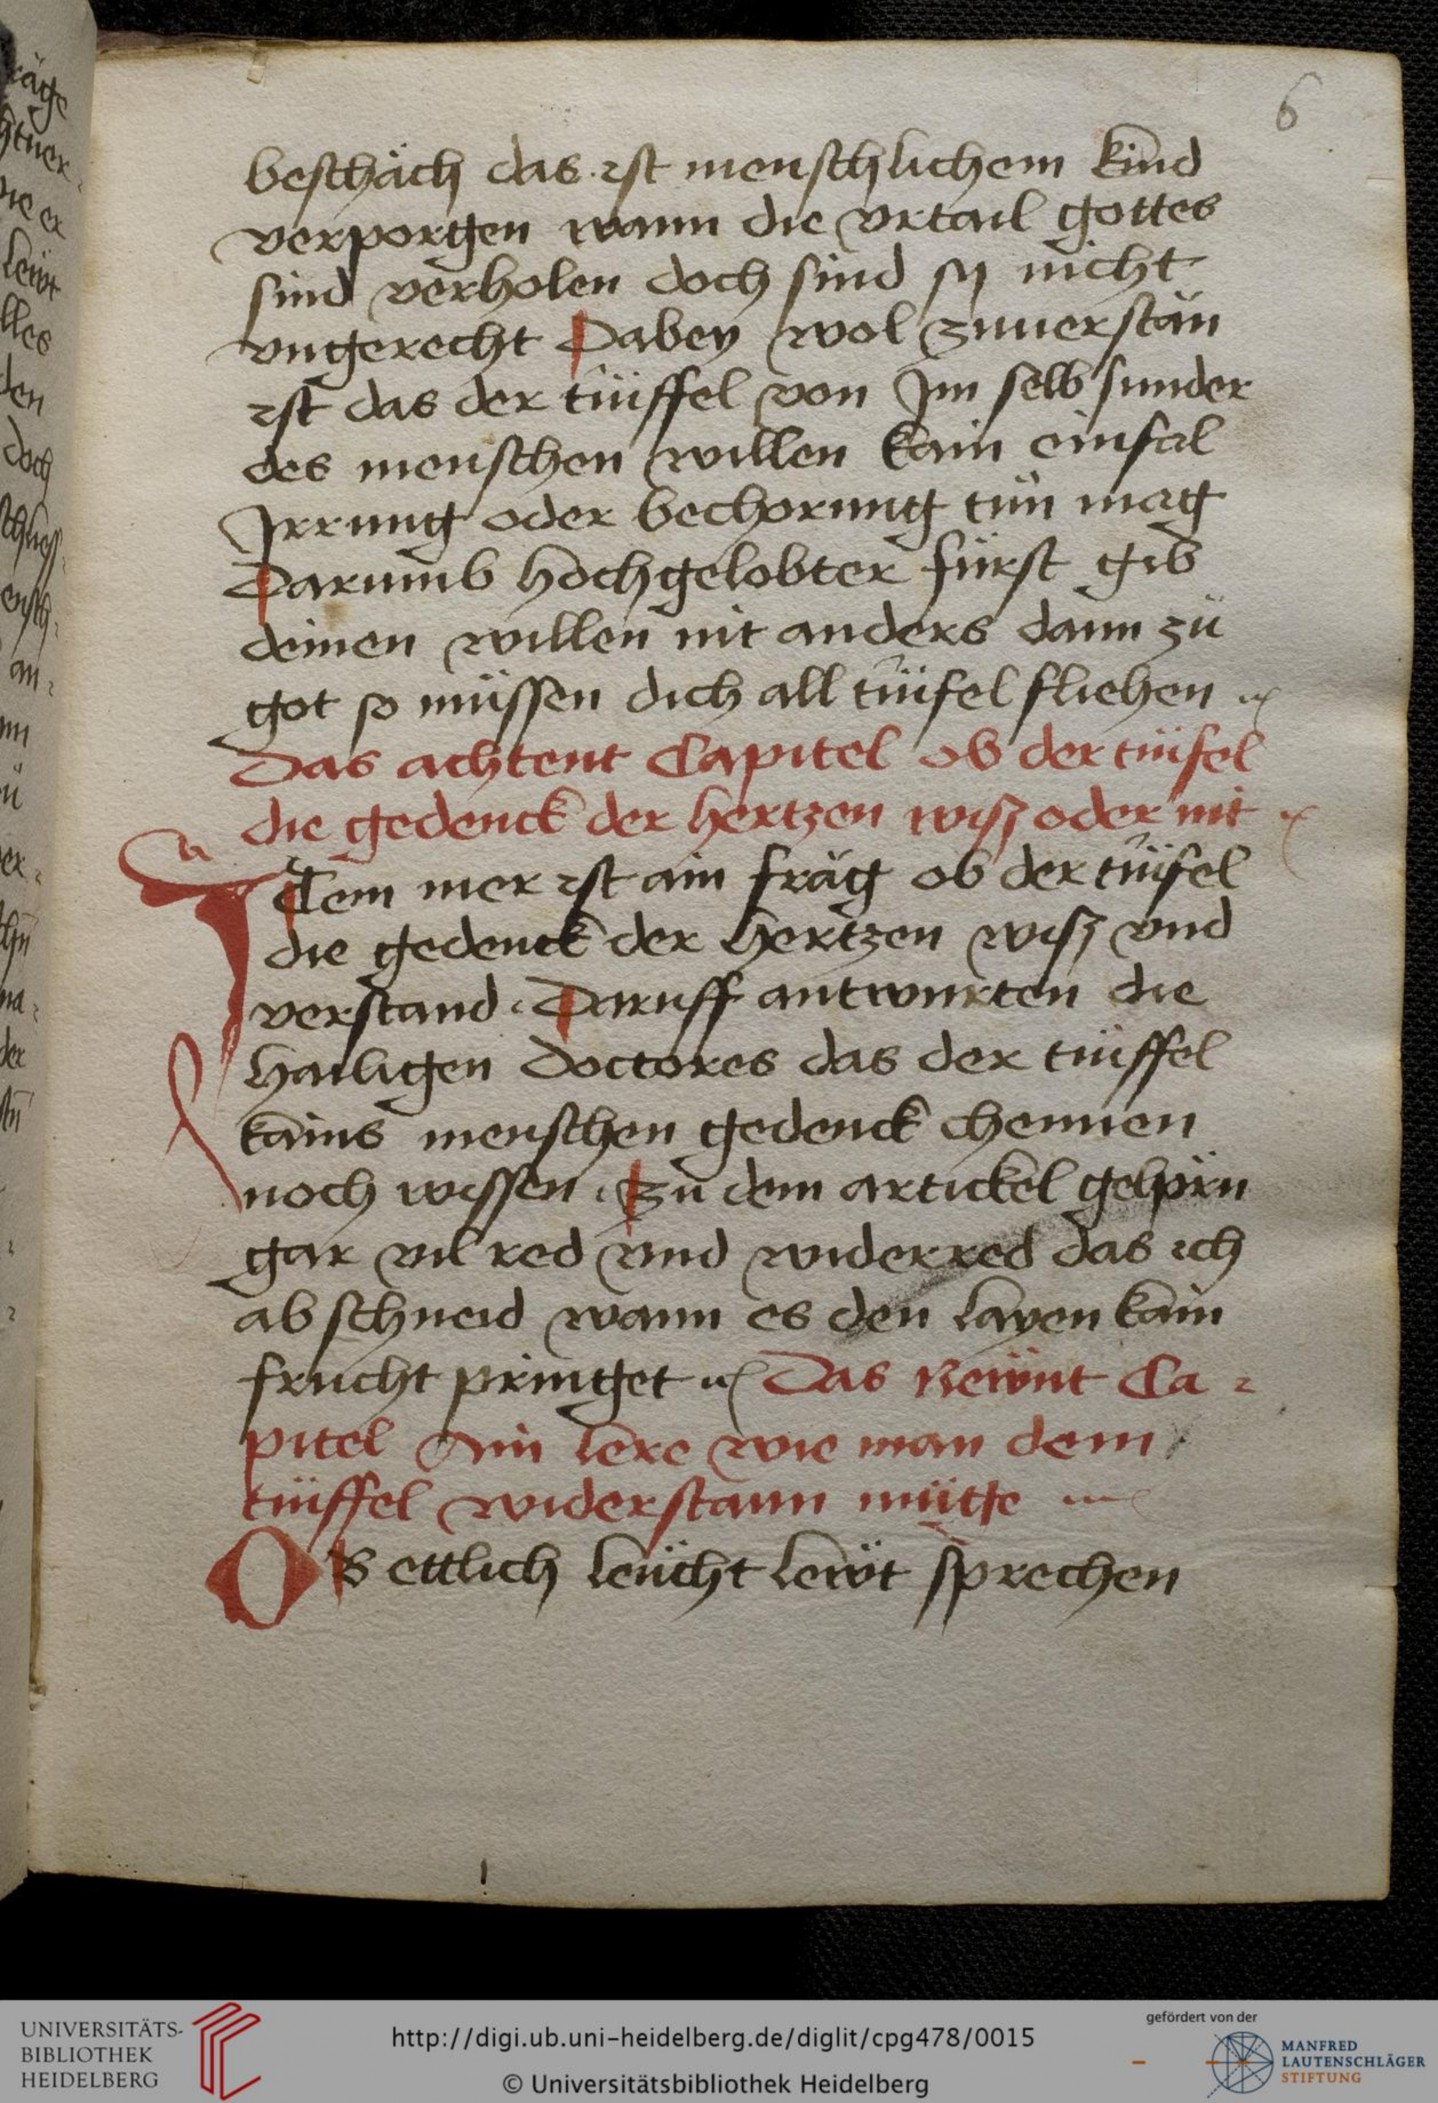 6
beschäch das ist menschlichem kind
verporgen wann die vrtail gottes
sind verholen doch sind sy nicht
vngerecht Dabey wol zuuerstän
ist das der tüffel von Im selb sunder
des menschen willen kain einfal
Irrung oder bechorung tün mag
Darumb hochgelobter fürst gib
deinen willen nit anders dann zü
got so müssen dich all tüifel fliehen
Das achtent Capitel ob der tüifel
die gedenck der hertzen wisz oder nit
ITem mer ist ain fräg ob der tüifel
die gedenck der hertzen wisz vnd
verstand. Daruff antwurten die
hailigen doctores das der tüffel
kains menschen gedenck chennen
noch wissen. zu dem artickel gehörn
gar vil red vnd widerred das ich
ab schneid wann es den layen kain
frucht pringet Das Newnt Ca
pitel Ain lere wie man dem
tüffel widerstann mütte
OB ettlich leücht lewt sprechen
UNIVERSITÄTS-
BIBLIOTHEK
HEIDELBERG
http://digi.ub.uni-heidelberg.de/diglit/cpg478/0015
© Universitätsbibliothek Heidelberg
gefördert von der
MANFRED
LAUTENSCHLÄGER
STIFTUNG